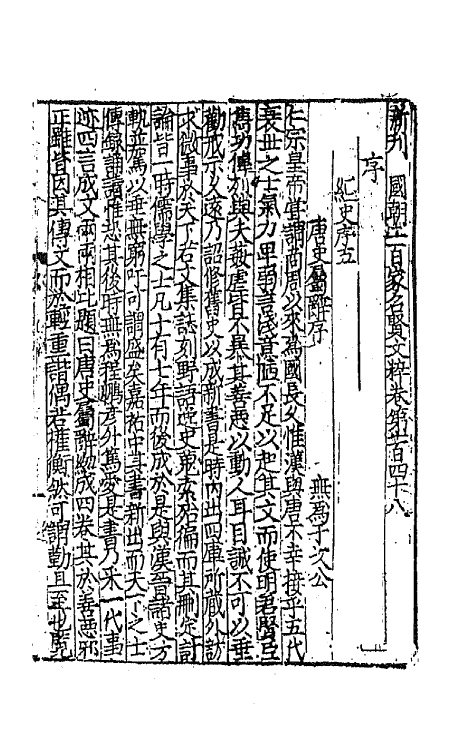 新刊國朝二百家名賢文粹卷第一百四十八
序
紀史序五
唐史屬辭序 無為子次公
仁宗皇帝嘗謂商周以來為國長久惟漢與唐不幸接乎五代
衰世之士氣力卑弱言淺意陋不足以起其文而使明君賢臣
雋功偉烈與夫昏虐皆不暴其善惡以動人耳目誠不可以垂
勸戒示久遠乃詔修舊史以成新書是時內出四庫所藏外訪
求微事於天下若文集誌刻野語地史蒐索殆徧而其刪定討
論皆一時儒學之士凡十有七年而後成於是與漢晉諸史方
軌並駕以垂無窮吁可謂盛矣嘉祐中其書新出而天下之士
傳錄誦讀惟恐其後時無為程鵬彥升篤愛是書乃采一代事
迹四言成文兩兩相比題曰唐史屬辭總成四卷其於善惡邪
正雖皆因其傳文而於輕重諧偶若權衡然可謂勤且至也覽